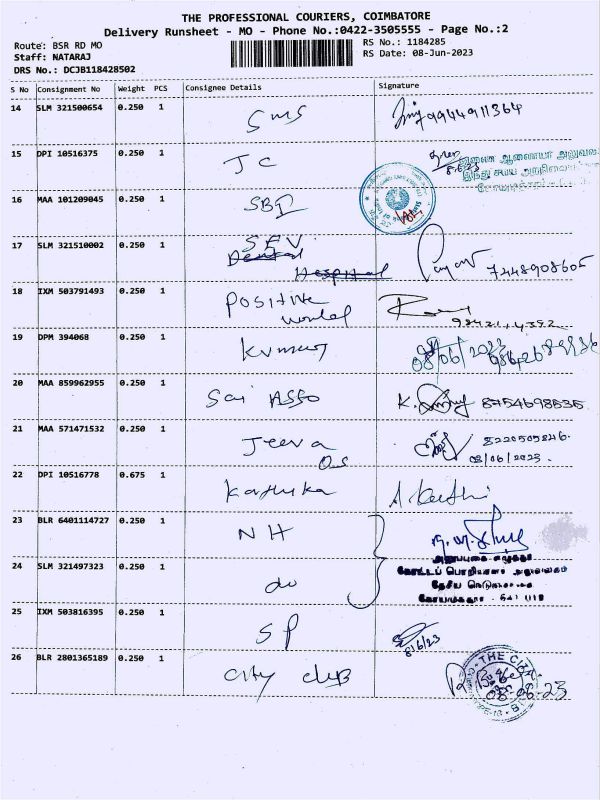 THE PROFESSIONAL COURIERS, COIMBATORE
Delivery Runsheet - MO - Phone No.:0422-3505555 - Page No.:2
Route: BSR RD MO
Staff: NATARAJ
DRS No.: DCJB118428502
RS No.: 1184285
RS Date: 08-Jun-2023
S No Consignment No Weight PCS Consignee Details Signature
14 SLM 321500654 0.250 1 SMS 7994491 1364
15 DPI 10516375 0.250 1 JC
இணை ஆணையர் அலுவல
இந்து சமய அறநிலைய
16 MAA 101209045 0.250 1 SBI
17 SLM 321510002 0.250 1 SFV
Dental
Hospital
7448908605
18 IXM 503791493 0.250 1 Positive
world
19 DPM 394068 0.250 1 Kumar 08/06/2023
20 MAA 859962955 0.250 1 Sai Asso 8754698535
21 MAA 571471532 0.250 1 Jeeva
Os
8220509846.
08/06/2023.
22 DPI 10516778 0.675 1 Karthika
23 BLR 6401114727 0.250 1 NH
கோட்டப் பொறியாளர் அலுவலகம்
தேசிய நெடுஞ்சாலை
24 SLM 321497323 0.250 1 do
25 IXM 503816395 0.250 1 SP 8/6/23
26 BLR 2801365189 0.250 1 City club
THE CITY
08-06-23